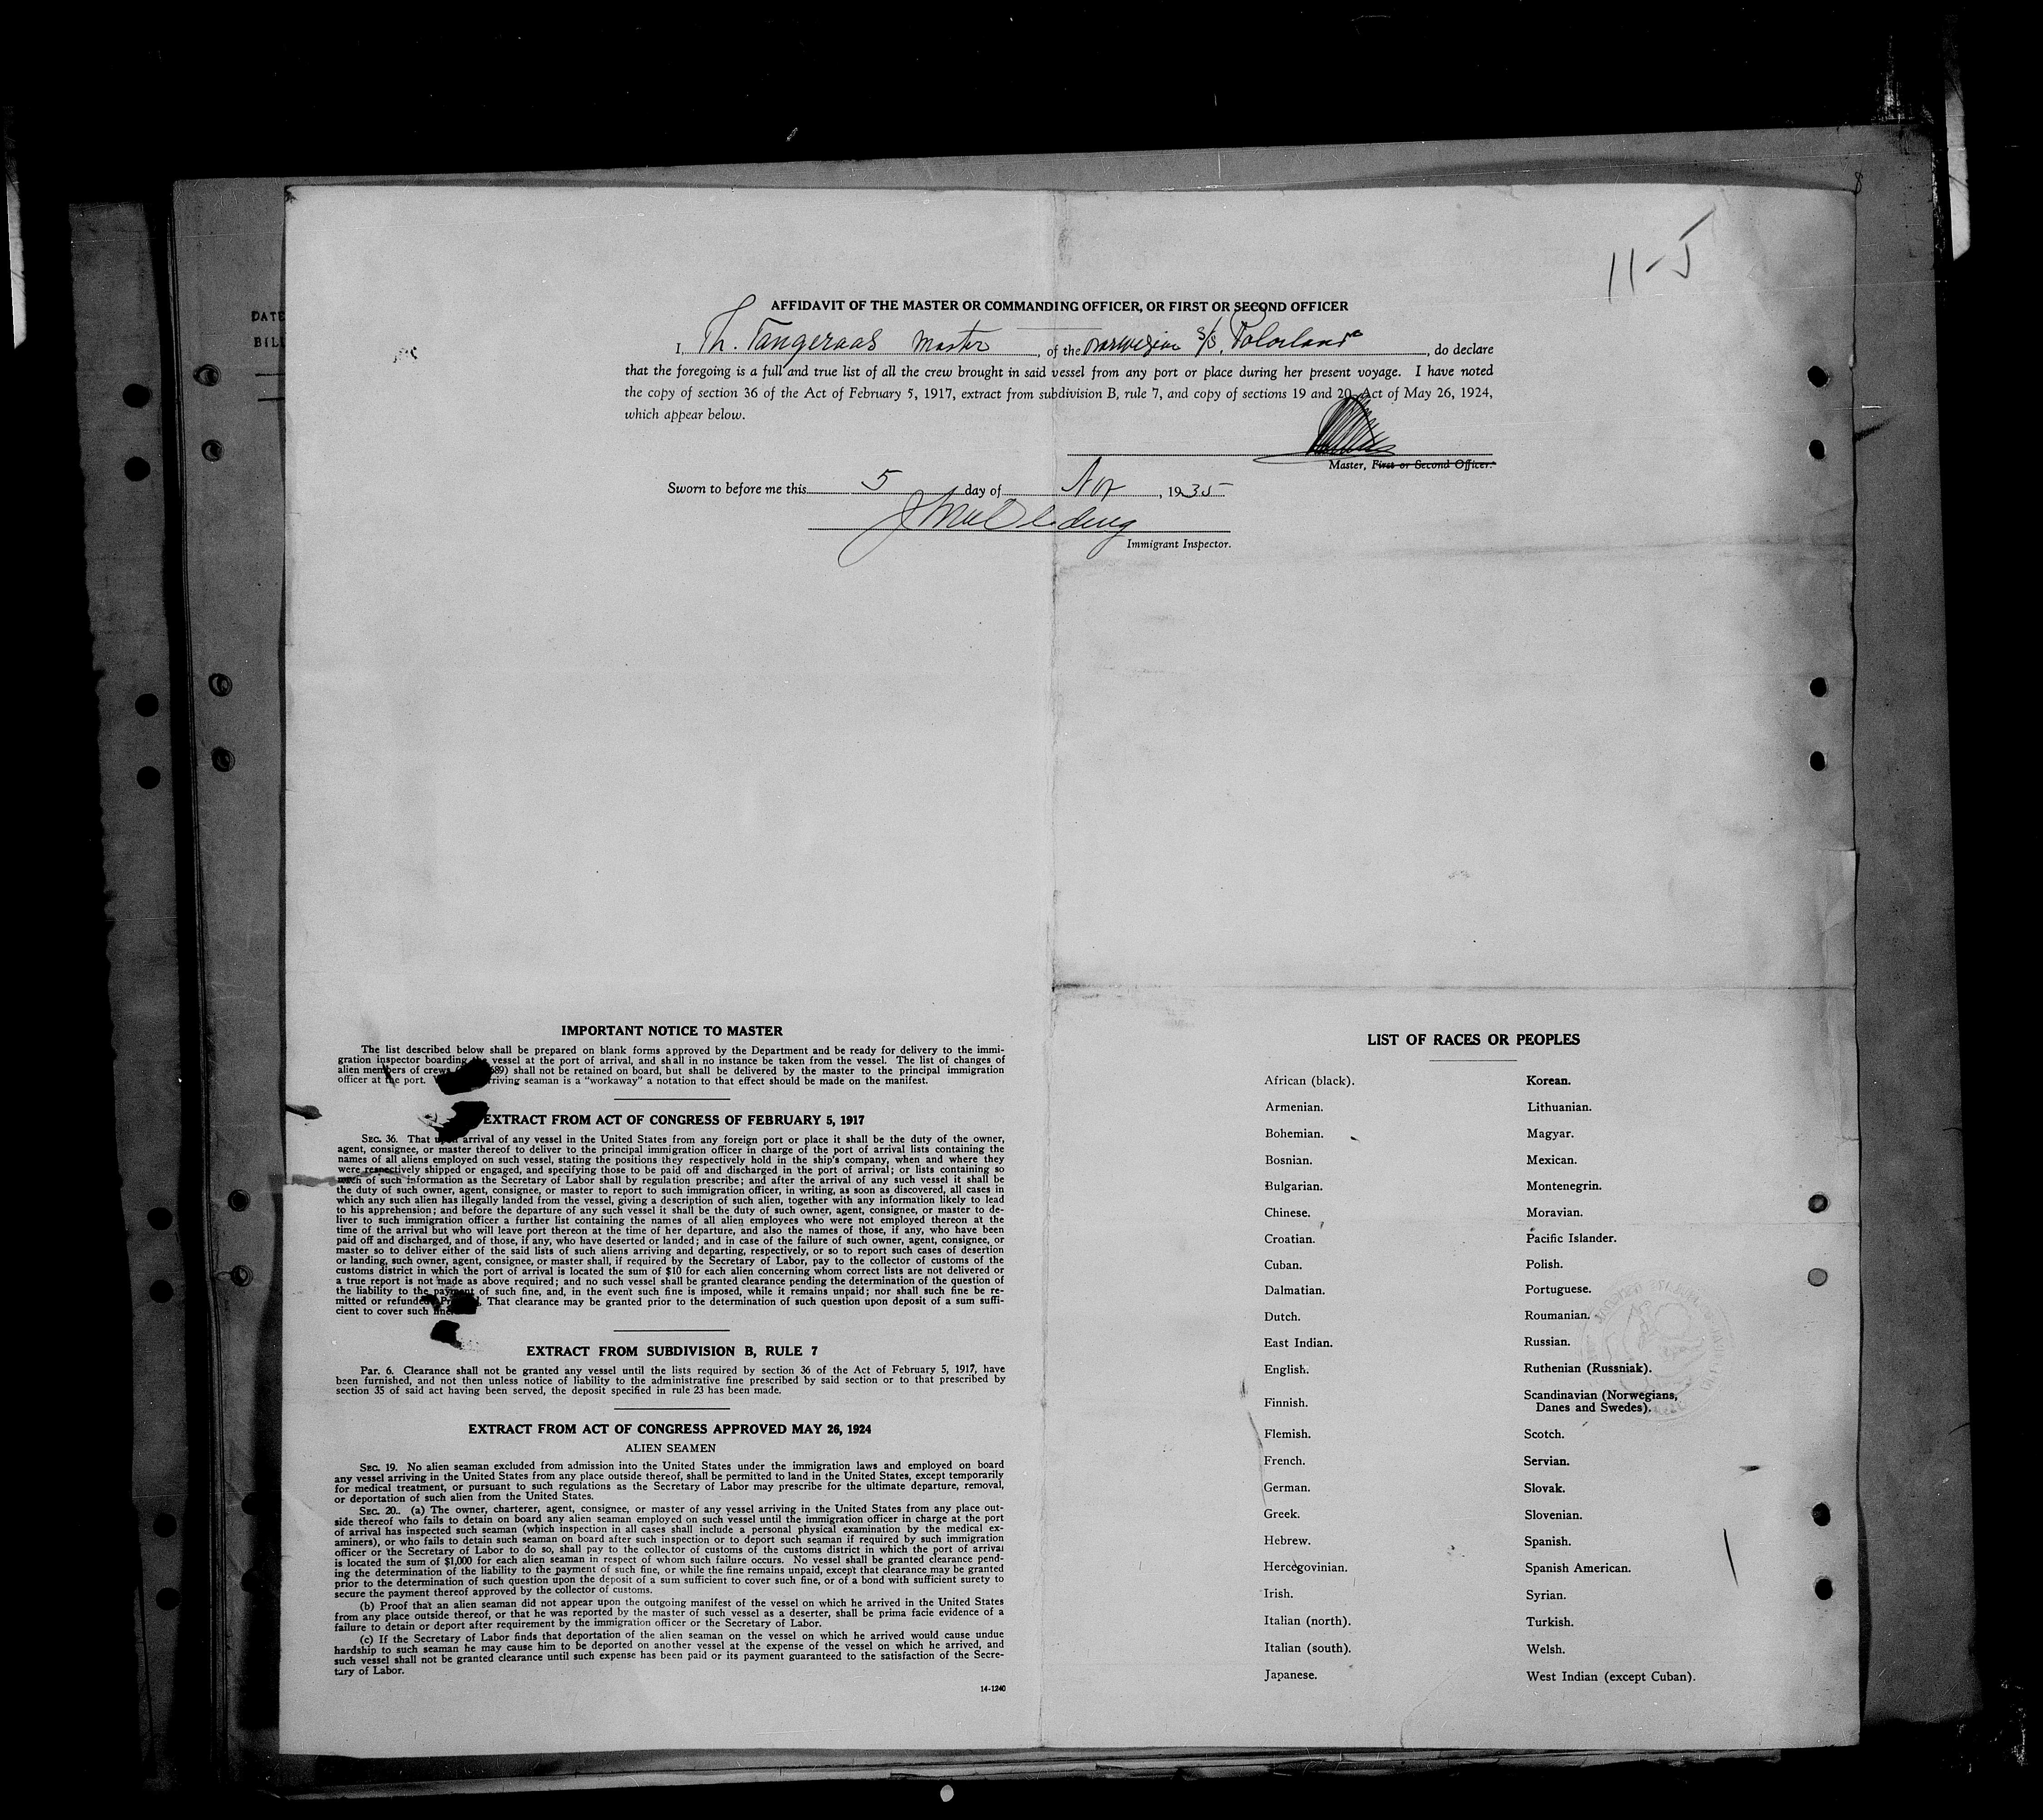 11-5
DATE
BILL
AFFIDAVIT OF THE MASTER OR COMMANDING OFFICER, OR FIRST OR SECOND OFFICER
I, Th. Tangeraas Master, of the Norwegian S/S. , do declare
that the foregoing is a full and true list of all the crew brought in said vessel from any port or place during her present voyage. I have noted
the copy of section 36 of the Act of February 5, 1917, extract from subdivision B, rule 7, and copy of sections 19 and 20, Act of May 26, 1924,
which appear below.
Master, First or Second Officer.
Sworn to before me this 5 day of Nov, 1935
Immigrant Inspector.
IMPORTANT NOTICE TO MASTER
The list described below shall be prepared on blank forms approved by the Department and be ready for delivery to the immi-
gration inspector boarding the vessel at the port of arrival, and shall in no instance be taken from the vessel. The list of changes of
alien members of crews 689) shall not be retained on board, but shall be delivered by the master to the principal immigration
officer at the port. arriving seaman is a "workaway" a notation to that effect should be made on the manifest.
EXTRACT FROM ACT OF CONGRESS OF FEBRUARY 5, 1917
SEC. 36. That upon arrival of any vessel in the United States from any foreign port or place it shall be the duty of the owner,
agent, consignee, or master thereof to deliver to the principal immigration officer in charge of the port of arrival lists containing the
names of all aliens employed on such vessel, stating the positions they respectively hold in the ship's company, when and where they
were respectively shipped or engaged, and specifying those to be paid off and discharged in the port of arrival; or lists containing so
much of such information as the Secretary of Labor shall by regulation prescribe; and after the arrival of any such vessel it shall be
the duty of such owner, agent, consignee, or master to report to such immigration officer, in writing, as soon as discovered, all cases in
which any such alien has illegally landed from the vessel, giving a description of such alien, together with any information likely to lead
to his apprehension; and before the departure of any such vessel it shall be the duty of such owner, agent, consignee, or master to de-
liver to such immigration officer a further list containing the names of all alien employees who were not employed thereon at the
time of the arrival but who will leave port thereon at the time of her departure, and also the names of those, if any, who have been
paid off and discharged, and of those, if any, who have deserted or landed; and in case of the failure of such owner, agent, consignee, or
master so to deliver either of the said lists of such aliens arriving and departing, respectively, or so to report such cases of desertion
or landing, such owner, agent, consignee, or master shall, if required by the Secretary of Labor, pay to the collector of customs of the
customs district in which the port of arrival is located the sum of $10 for each alien concerning whom correct lists are not delivered or
a true report is not made as above required; and no such vessel shall be granted clearance pending the determination of the question of
the liability to the payment of such fine, and, in the event such fine is imposed, while it remains unpaid; nor shall such fine be re-
mitted or refunded: That clearance may be granted prior to the determination of such question upon deposit of a sum suffi-
cient to cover such fine.
EXTRACT FROM SUBDIVISION B, RULE 7
Par. 6. Clearance shall not be granted any vessel until the lists required by section 36 of the Act of February 5, 1917, have
been furnished, and not then unless notice of liability to the administrative fine prescribed by said section or to that prescribed by
section 35 of said act having been served, the deposit specified in rule 23 has been made.
EXTRACT FROM ACT OF CONGRESS APPROVED MAY 26, 1924
ALIEN SEAMEN
SEC. 19. No alien seaman excluded from admission into the United States under the immigration laws and employed on board
any vessel arriving in the United States from any place outside thereof, shall be permitted to land in the United States, except temporarily
for medical treatment, or pursuant to such regulations as the Secretary of Labor may prescribe for the ultimate departure, removal,
or deportation of such alien from the United States.
SEC. 20. (a) The owner, charterer, agent, consignee, or master of any vessel arriving in the United States from any place out-
side thereof who fails to detain on board any alien seaman employed on such vessel until the immigration officer in charge at the port
of arrival has inspected such seaman (which inspection in all cases shall include a personal physical examination by the medical ex-
aminers), or who fails to detain such seaman on board after such inspection or to deport such seaman if required by such immigration
officer or the Secretary of Labor to do so, shall pay to the collector of customs of the customs district in which the port of arrival
is located the sum of $1,000 for each alien seaman in respect of whom such failure occurs. No vessel shall be granted clearance pend-
ing the determination of the liability to the payment of such fine, or while the fine remains unpaid, except that clearance may be granted
prior to the determination of such question upon the deposit of a sum sufficient to cover such fine, or of a bond with sufficient surety to
secure the payment thereof approved by the collector of customs.
(b) Proof that an alien seaman did not appear upon the outgoing manifest of the vessel on which he arrived in the United States
from any place outside thereof, or that he was reported by the master of such vessel as a deserter, shall be prima facie evidence of a
failure to detain or deport after requirement by the immigration officer or the Secretary of Labor.
(c) If the Secretary of Labor finds that deportation of the alien seaman on the vessel on which he arrived would cause undue
hardship to such seaman he may cause him to be deported on another vessel at the expense of the vessel on which he arrived, and
such vessel shall not be granted clearance until such expense has been paid or its payment guaranteed to the satisfaction of the Secre-
tary of Labor.
14-1240
LIST OF RACES OR PEOPLES
African (black).
Armenian.
Bohemian.
Bosnian.
Bulgarian.
Chinese.
Croatian.
Cuban.
Dalmatian.
Dutch.
East Indian.
English.
Finnish.
Flemish.
French.
German.
Greek.
Hebrew.
Hercegovinian.
Irish.
Italian (north).
Italian (south).
Japanese.
Korean.
Lithuanian.
Magyar.
Mexican.
Montenegrin.
Moravian.
Pacific Islander.
Polish.
Portuguese.
Roumanian.
Russian.
Ruthenian (Russniak).
Scandinavian (Norwegians,
Danes and Swedes).
Scotch.
Servian.
Slovak.
Slovenian.
Spanish.
Spanish American.
Syrian.
Turkish.
Welsh.
West Indian (except Cuban).